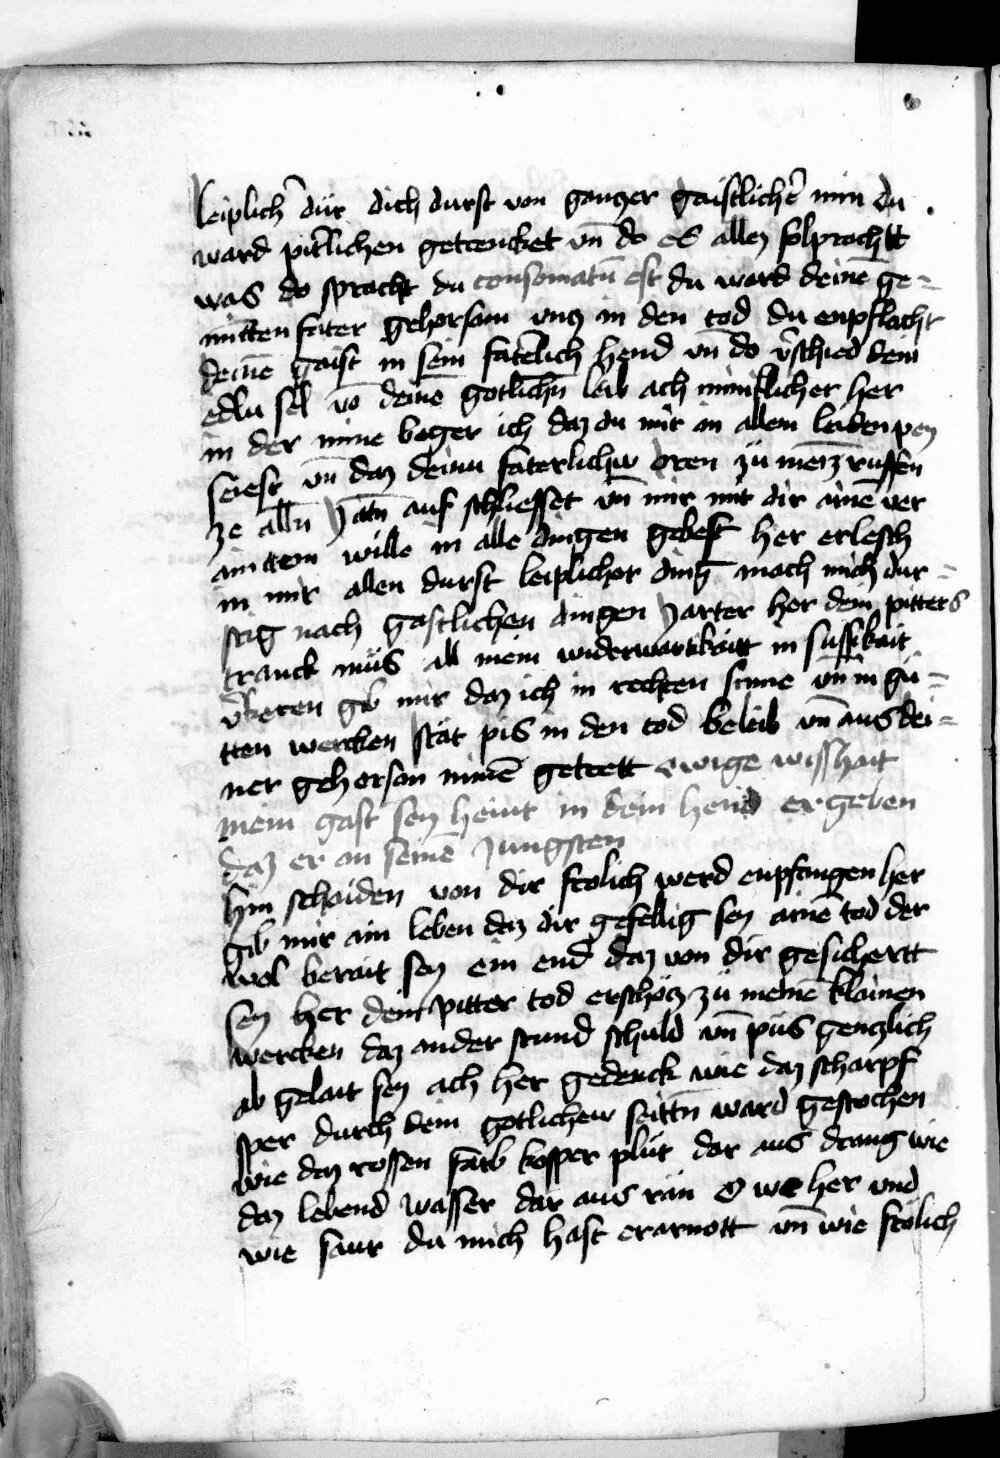 leiplich̄ dür dich durst von gantzer gaistlich̄ min du
ward pit̄lichen getrencket vn̄ do es allez folprachtt
was do spracht du consomatū est du ward deinē ge=
mitten fater gehorsam vntz in den tod du enpflacht
deinē gaist in sein fat̄lich hend vn̄ do v̄schied dein
edlu sel vō deinē gotlichn̄ leib ach minnklicher her
in der mine beger ich daz du mir in allem leiden pey
seiest vn̄ daz deinu faterlichw oren zü meinz rüffen
ze alln̄ zatn̄ auf schliesset vn̄ mir mit dir ainē ver
ainttem wille in alle dingen gebest her erlesch
in mir allen durst leiplicher ding mach mich dur=
stig nach gastlichen dingen zarter her dein pitters
tranck müs all mein widerwartikaitt in süssikait
v̄keren gib mir daz ich in rechten sinne vn̄ in gü=
tten wercken stät pis in den tod beleib vn̄ aus dei=
ner gehorsan nimē getrett ewige wisshait
mein gast sey heint in dein hend ergeben
daz er an seinē jungsten
hin schaiden von dir frolich werd enpfangen her
gib mir ain leben daz dir gefellig sey ainē tod der
wol berait sey ein end daz von dir gesichertt
sey her dein pitter tod erschötz zü meinē klainen
wercken daz ander stund schuld vn̄ püs gentzlich
ab gelait sey ach her gedenck wie daz scharpf
sper durch dein gotlichew seittn̄ ward gestochen
wie daz rossen farb kosper plüt dar aus drang wie
daz lebend wasser dar aus ran O we her vnd
wie saur du mich hast erarnott vn̄ wie frölich